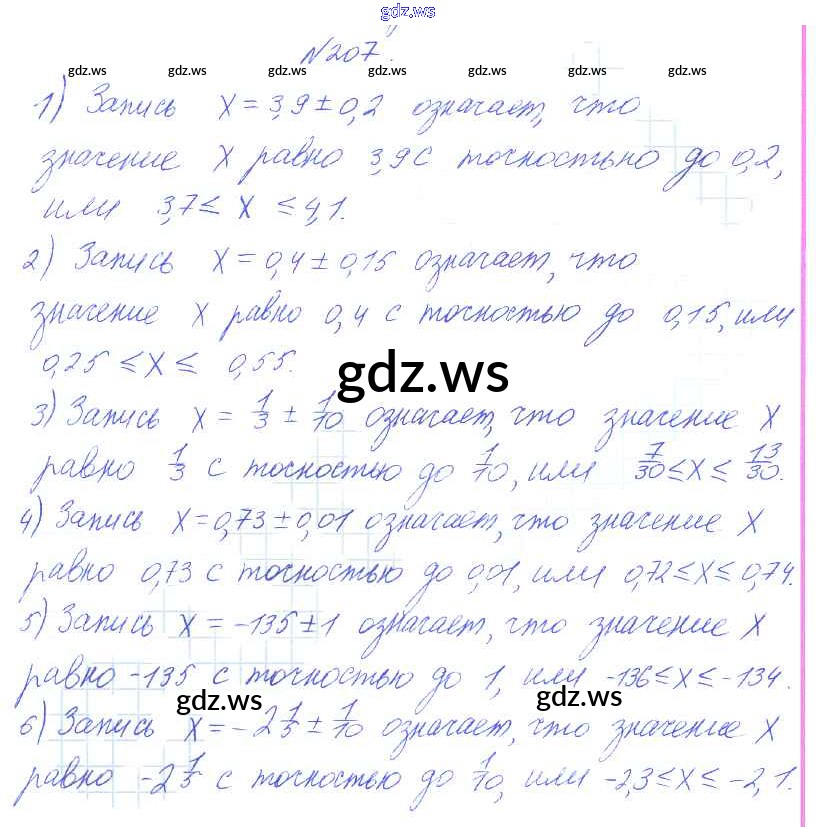 gdz.ws
№207.
gdz.ws gdz.ws gdz.ws gdz.ws gdz.ws gdz.ws gdz.ws
1) Запись x = 3,9 ± 0,2 означает, что
значение x равно 3,9 с точностьно до 0,2,
или 3,7 ≤ x ≤ 4,1.
2) Запись x = 0,4 ± 0,15 означает, что
значение x равно 0,4 с точностью до 0,15, или
0,25 ≤ x ≤ 0,55.
gdz.ws
3) Запись x = 1/3 ± 1/10 означает, что значение x
равно 1/3 с точностью до 1/10, или 7/30 ≤ x ≤ 13/30.
4) Запись x = 0,73 ± 0,01 означает, что значение x
равно 0,73 с точностью до 0,01, или 0,72 ≤ x ≤ 0,74.
5) Запись x = -135 ± 1 означает, что значение x
равно -135 с точностью до 1, или -136 ≤ x ≤ -134.
gdz.ws gdz.ws
6) Запись x = -2 1/5 ± 1/10 означает, что значение x
равно -2 1/5 с точностью до 1/10, или -2,3 ≤ x ≤ -2,1.